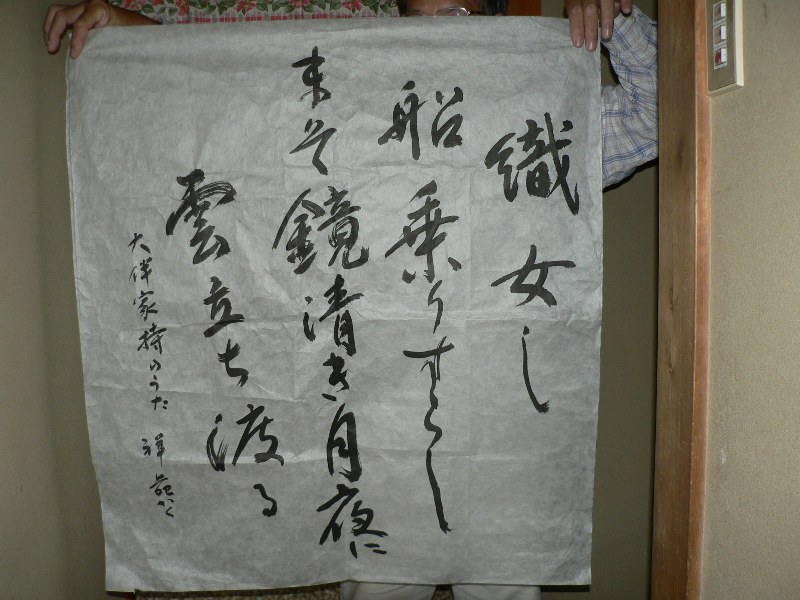 織女し
船乗りすらし
末そ鏡清き月夜に
雲立ち渡る
大伴家持のうた 祥